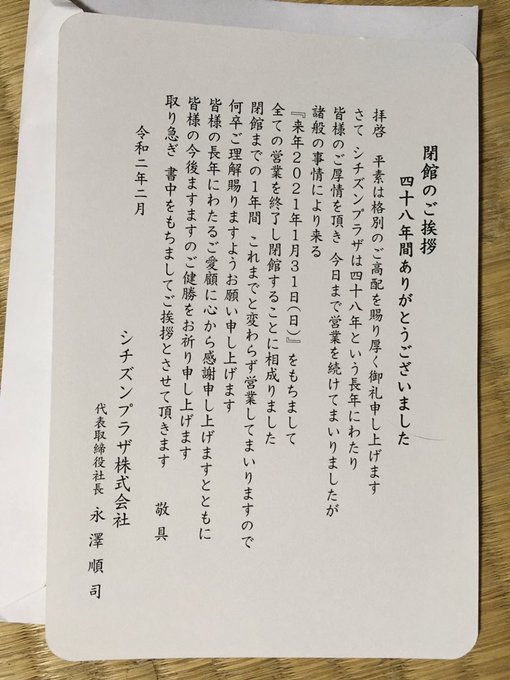 閉館のご挨拶
四十八年間ありがとうございました
拝啓　平素は格別のご高配を賜り厚く御礼申し上げます
さて シチズンプラザは四十八年という長年にわたり
皆様のご厚情を頂き 今日まで営業を続けてまいりましたが
諸般の事情により来る
『来年2021年1月31日(日)』をもちまして
全ての営業を終了し閉館することに相成りました
閉館までの1年間 これまでと変わらず営業してまいりますので
何卒ご理解賜りますようお願い申し上げます
皆様の長年にわたるご愛顧に心から感謝申し上げますとともに
皆様の今後ますますのご健勝をお祈り申し上げます
取り急ぎ 書中をもちましてご挨拶とさせて頂きます　敬具
令和二年二月
シチズンプラザ株式会社
代表取締役社長　永澤順司